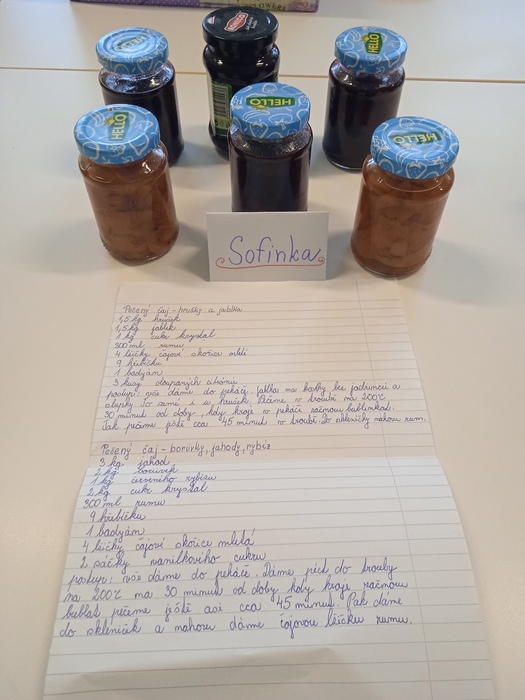 HELLO
HELLO
HELLO
HELLO
Sofinka
Pečený čaj - hrušky a jablka
1,5 kg hrušek
1,5 kg jablek
1 kg cukr krystal
300 ml rumu
4 lžičky čajové skořice mleté
9 hřebíčku
1 badyán
3 kusy oloupaných citrónů
postup: vše dáme do pekáče. Jablka na kostky bez jadřinců a
slupky. To samé i u hrušek. Pečeme v troubě na 200°C
30 minut od doby, kdy kraje v pekáči začnou bublinkat.
Pak pečeme ještě cca 45 minut v troubě. Do skleničky nahoru rum.
Pečený čaj - borůvky, jahody, rybíz
3 kg jahod
2 kg borůvek
1 kg červeného rybízu
2 kg cukr krystal
300 ml rumu
9 hřebíčku
1 badyán
4 lžičky čajové skořice mletá
2 sáčky vanilkového cukru
postup: vše dáme do pekáče. Dáme péct do trouby
na 200°C na 30 minut od doby kdy kraje začnou
bublat pečeme ještě asi cca 45 minut. Pak dáme
do skleniček a nahoru dáme čajovou lžičku rumu.